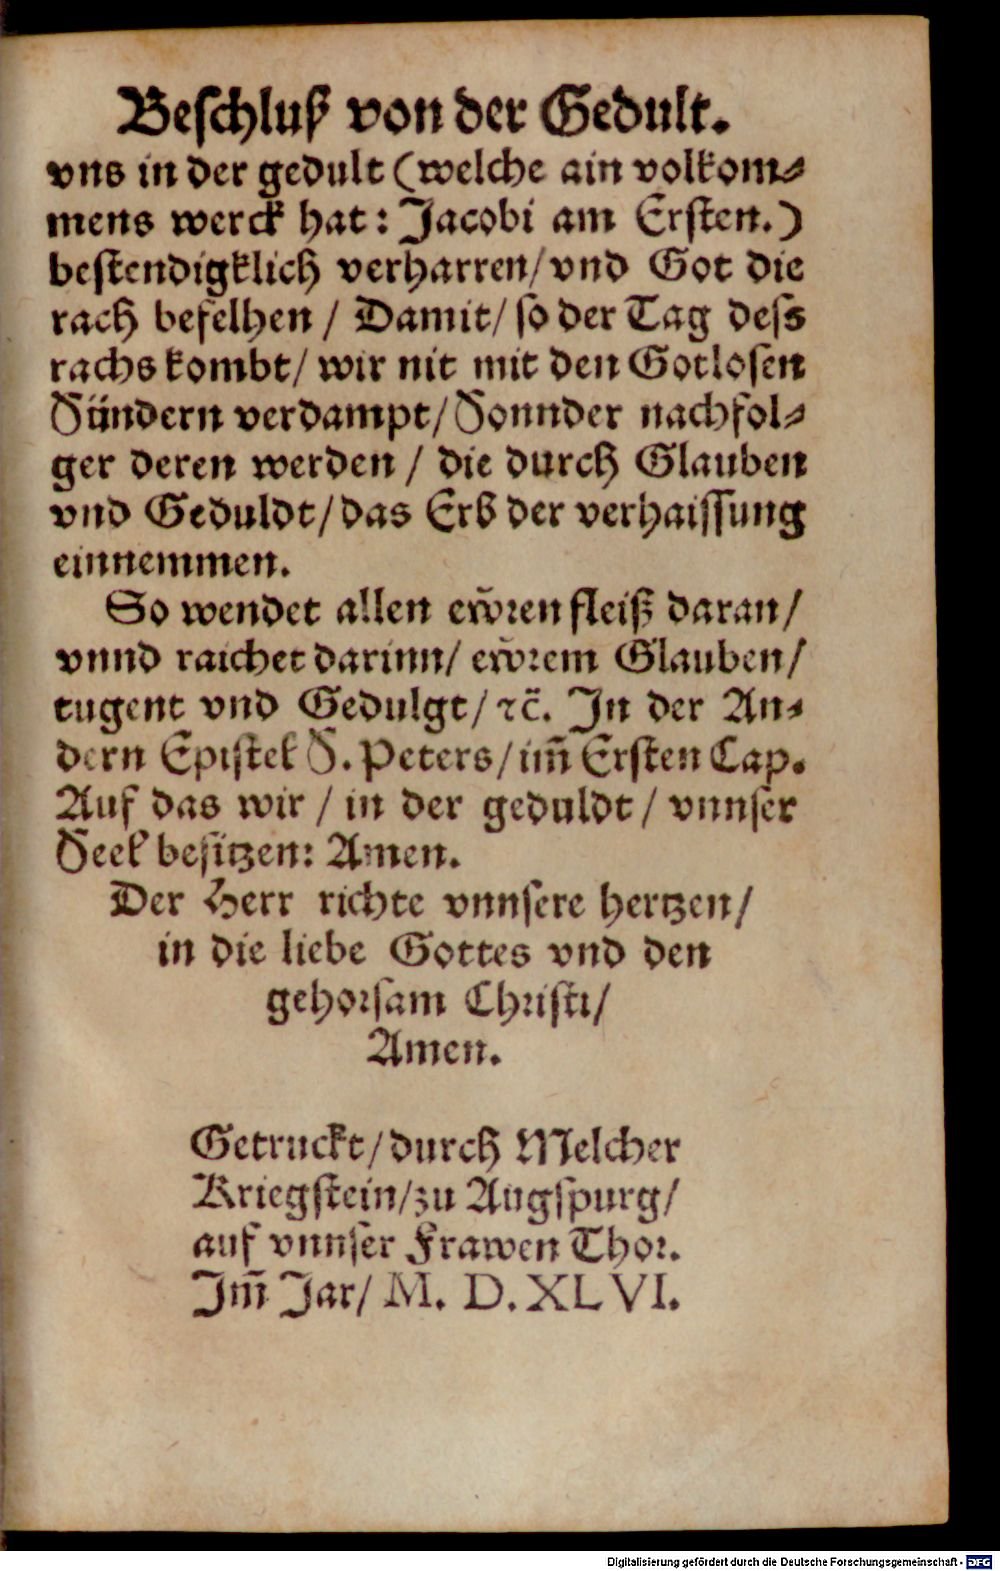 Beſchluß von der Gedult.
vns in der gedult (welche ain volkom⸗
mens werck hat: Jacobi am Erſten.)
beſtendigklich verharren/ vnd Got die
rach befelhen / Damit/ ſo der Tag deſs
rachs kombt/ wir nit mit den Gotloſen
Sündern verdampt/ Sonnder nachfol⸗
ger deren werden / die durch Glauben
vnd Geduldt/ das Erb der verhaiſſung
einnemmen.
So wendet allen ew̃ꝛen fleiß daran/
vnnd raichet darinn/ ew̃ꝛem Glauben/
tugent vnd Gedulgt/ ꝛc̃. In der An⸗
dern Epiſtel S. Peters/ im̃ Erſten Cap.
Auf das wir / in der geduldt / vnnſer
Seel beſitzen: Amen.
Der Herr richte vnnſere hertzen/
in die liebe Gottes vnd den
gehoꝛſam Chꝛiſti/
Amen.
Getruckt/ durch Melcher
Kriegſtein/ zu Augſpurg/
auf vnnſer Frawen Thoꝛ.
Im̃ Jar/ M. D. XLVI.
Digitalisierung gefördert durch die Deutsche Forschungsgemeinschaft - DFG